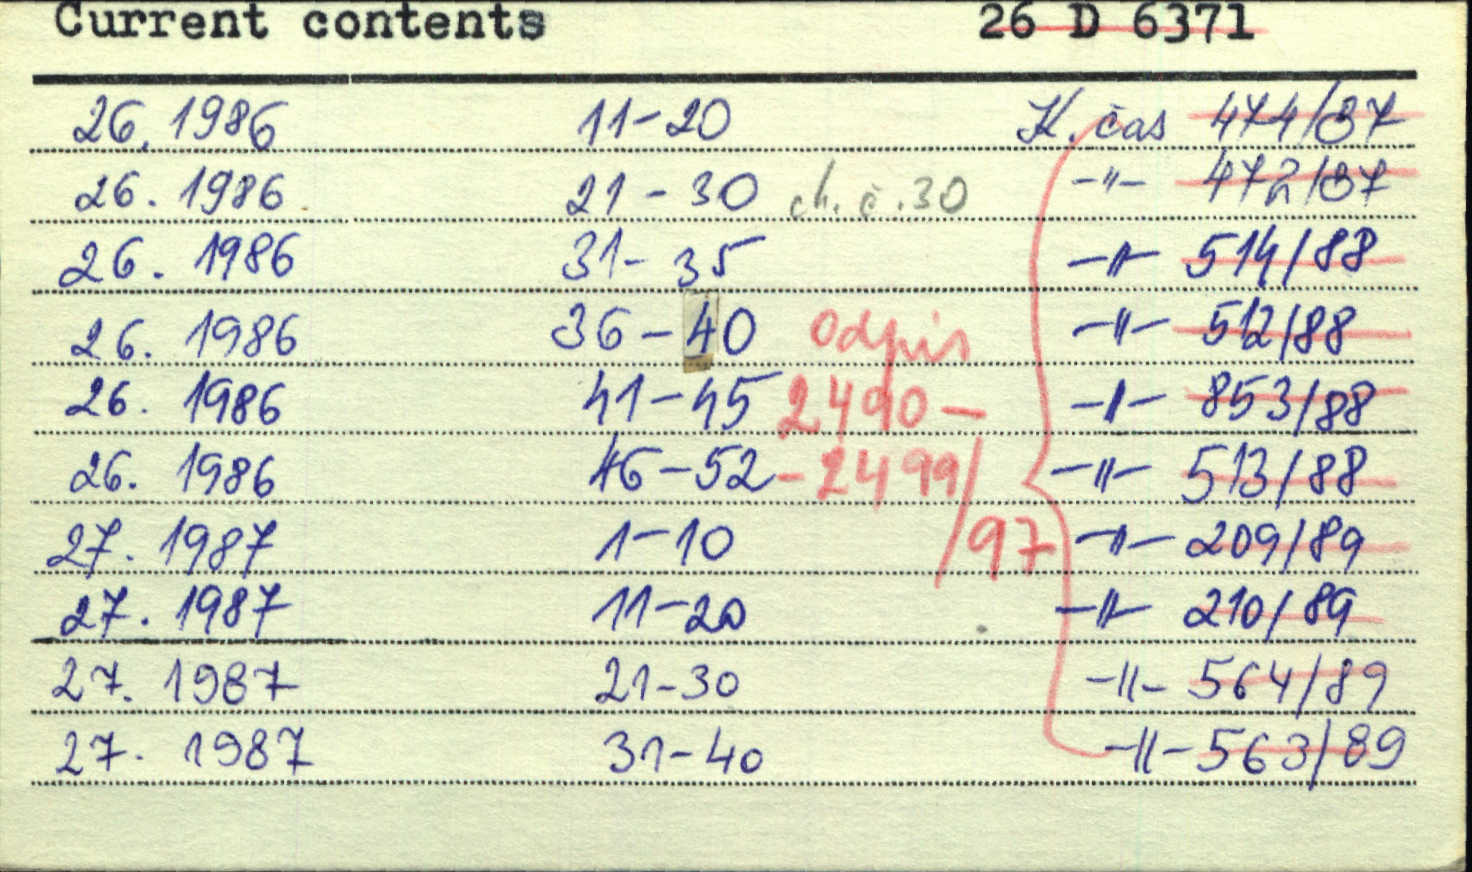 Current contents 26 D 6371
26. 1986 11-20 K. čas 474/87
26. 1986 21-30 ch. č. 30 -"- 472/87
26. 1986 31-35 -"- 514/88
26. 1986 36-40 odpis -"- 512/88
26. 1986 41-45 2490- -"- 853/88
26. 1986 46-52 -2499/ -"- 513/88
27. 1987 1-10 /97 -"- 209/89
27. 1987 11-20 -"- 210/89
27. 1987 21-30 -"- 564/89
27. 1987 31-40 -"- 563/89